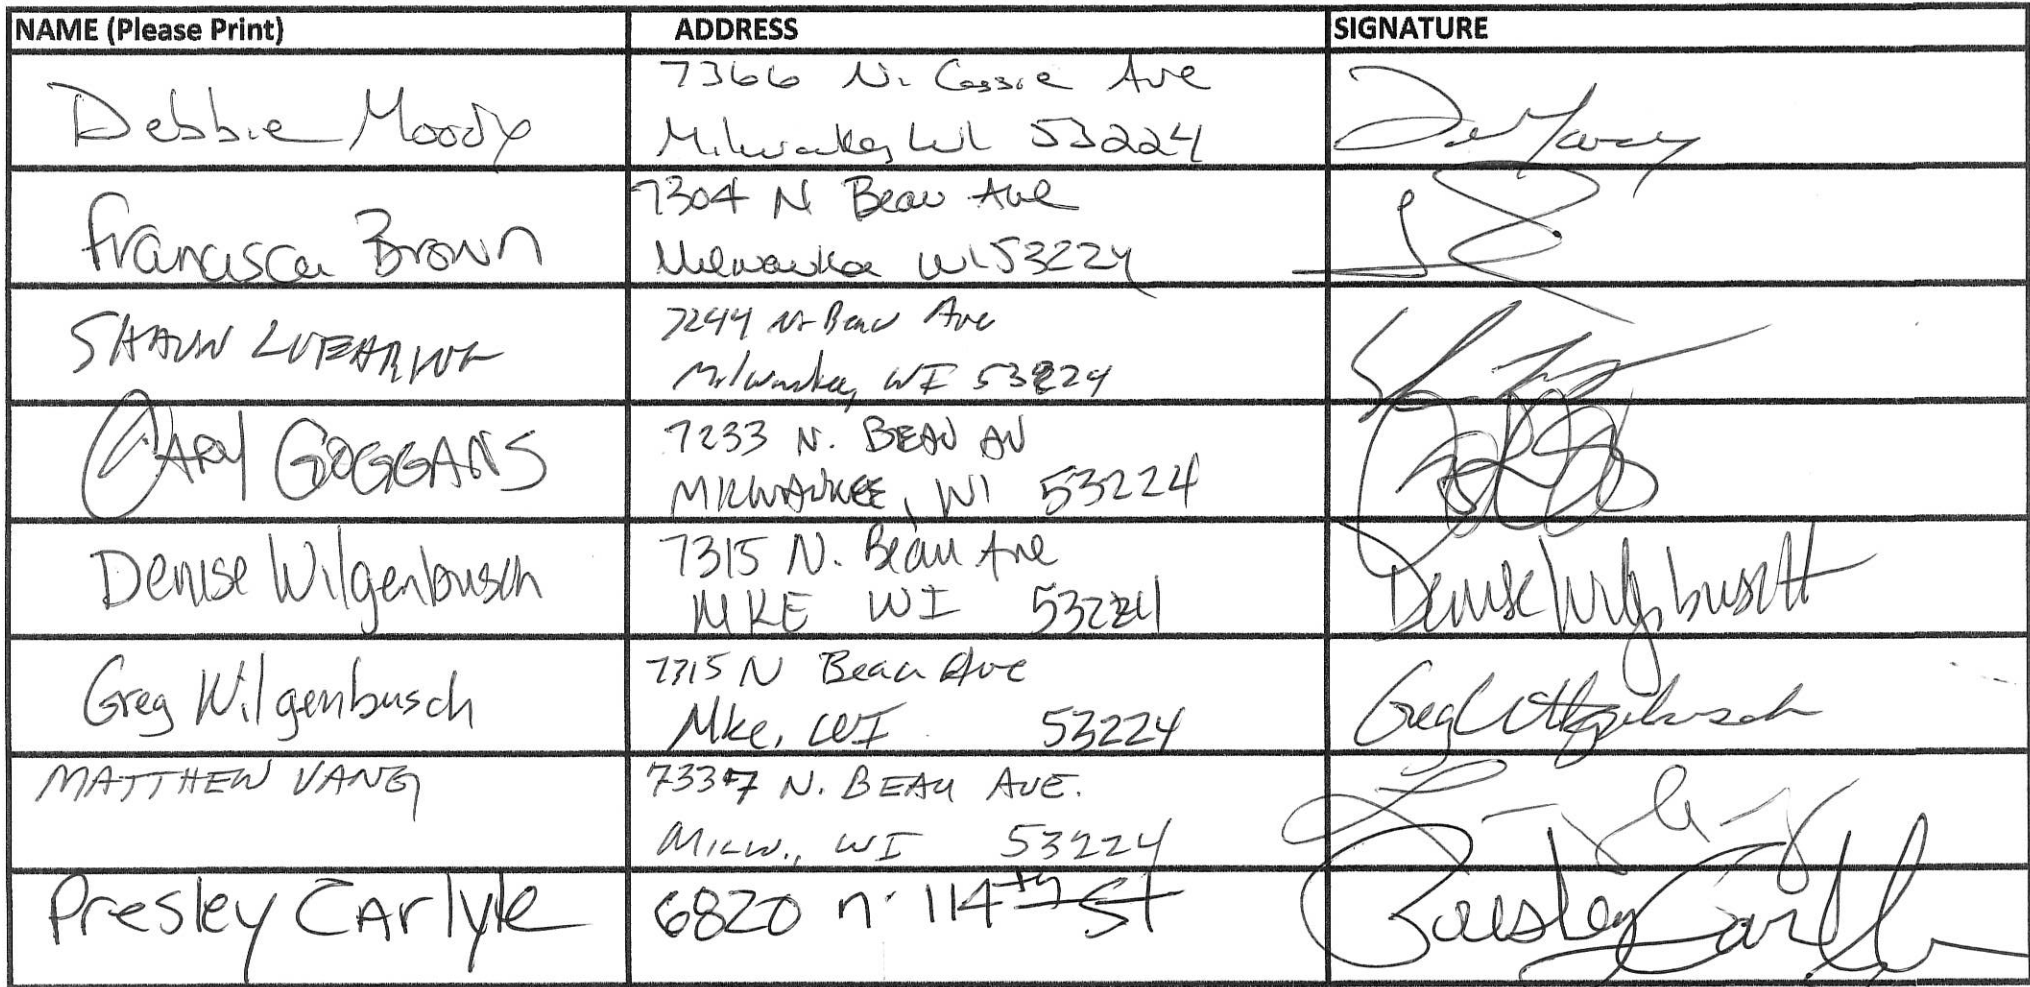 NAME (Please Print) ADDRESS SIGNATURE
Debbie Moody 7366 N. Cassie Ave
Milwaukee, WI 53224
Francisca Brown 7304 N Beau Ave
Milwaukee WI 53224
SHAUN 7244 N Beau Ave
Milwaukee, WI 53224
CARY GOGGANS 7233 N. BEAU AV
MILWAUKEE, WI 53224
Denise Wilgenbusch 7315 N. Beau Ave Denise Wilgenbusch
MKE WI 53224
Greg Wilgenbusch 7315 N Beau Ave Greg Wilgenbusch
Mke, WI 53224
MATTHEW VANG 7337 N. BEAU AVE.
MILW., WI 53224
Presley CArlyle 6820 n. 114th St Presley Carlyle